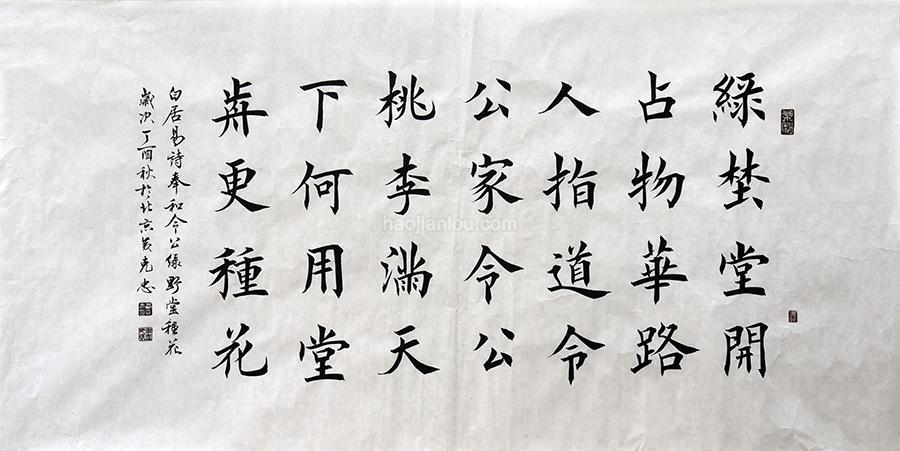 綠埜堂開
占物華路
人指道令
公家令公
桃李滿天
下何用堂
歬更種花
白居易詩奉和令公綠野堂種花
歲次丁酉秋於北京克忠
haojianlou.com